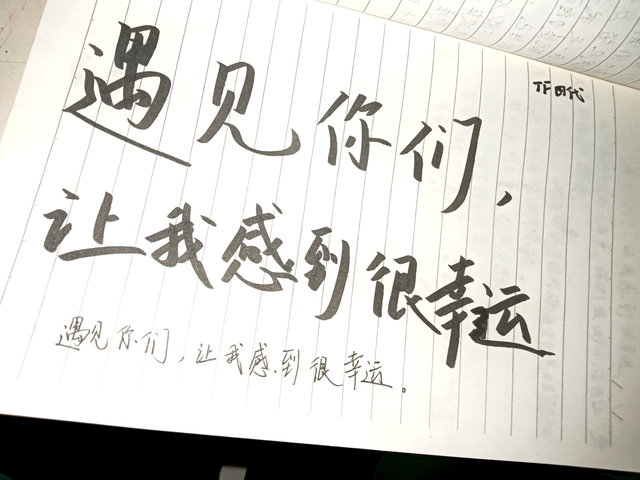 TF四代
遇见你们，
让我感到很幸运
遇见你们，让我感到很幸运。